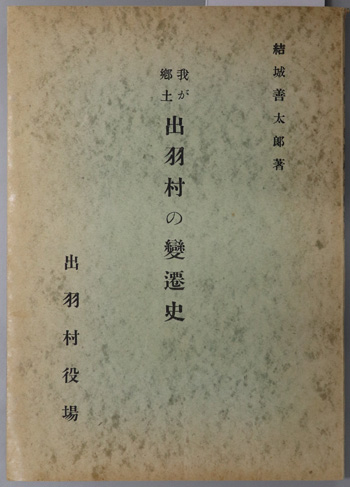 結城善太郎著
我が郷土
出羽村の變遷史
出羽村役場